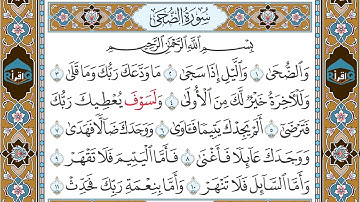 سُورَةُ الضُّحَىٰ
بِسْمِ ٱللَّهِ ٱلرَّحْمَٰنِ ٱلرَّحِيمِ
وَٱلضُّحَىٰ ١ وَٱلَّيْلِ إِذَا سَجَىٰ ٢ مَا وَدَّعَكَ رَبُّكَ وَمَا قَلَىٰ ٣
وَلَلْـَٔاخِرَةُ خَيْرٌ لَّكَ مِنَ ٱلْأُولَىٰ ٤ وَلَسَوْفَ يُعْطِيكَ رَبُّكَ
فَتَرْضَىٰٓ ٥ أَلَمْ يَجِدْكَ يَتِيمًا فَـَٔاوَىٰ ٦ وَوَجَدَكَ ضَآلًّا فَهَدَىٰ
٧ وَوَجَدَكَ عَآئِلًا فَأَغْنَىٰ ٨ فَأَمَّا ٱلْيَتِيمَ فَلَا تَقْهَرْ
٩ وَأَمَّا ٱلسَّآئِلَ فَلَا تَنْهَرْ ١٠ وَأَمَّا بِنِعْمَةِ رَبِّكَ فَحَدِّثْ ١١
اقرأ
اقرأ